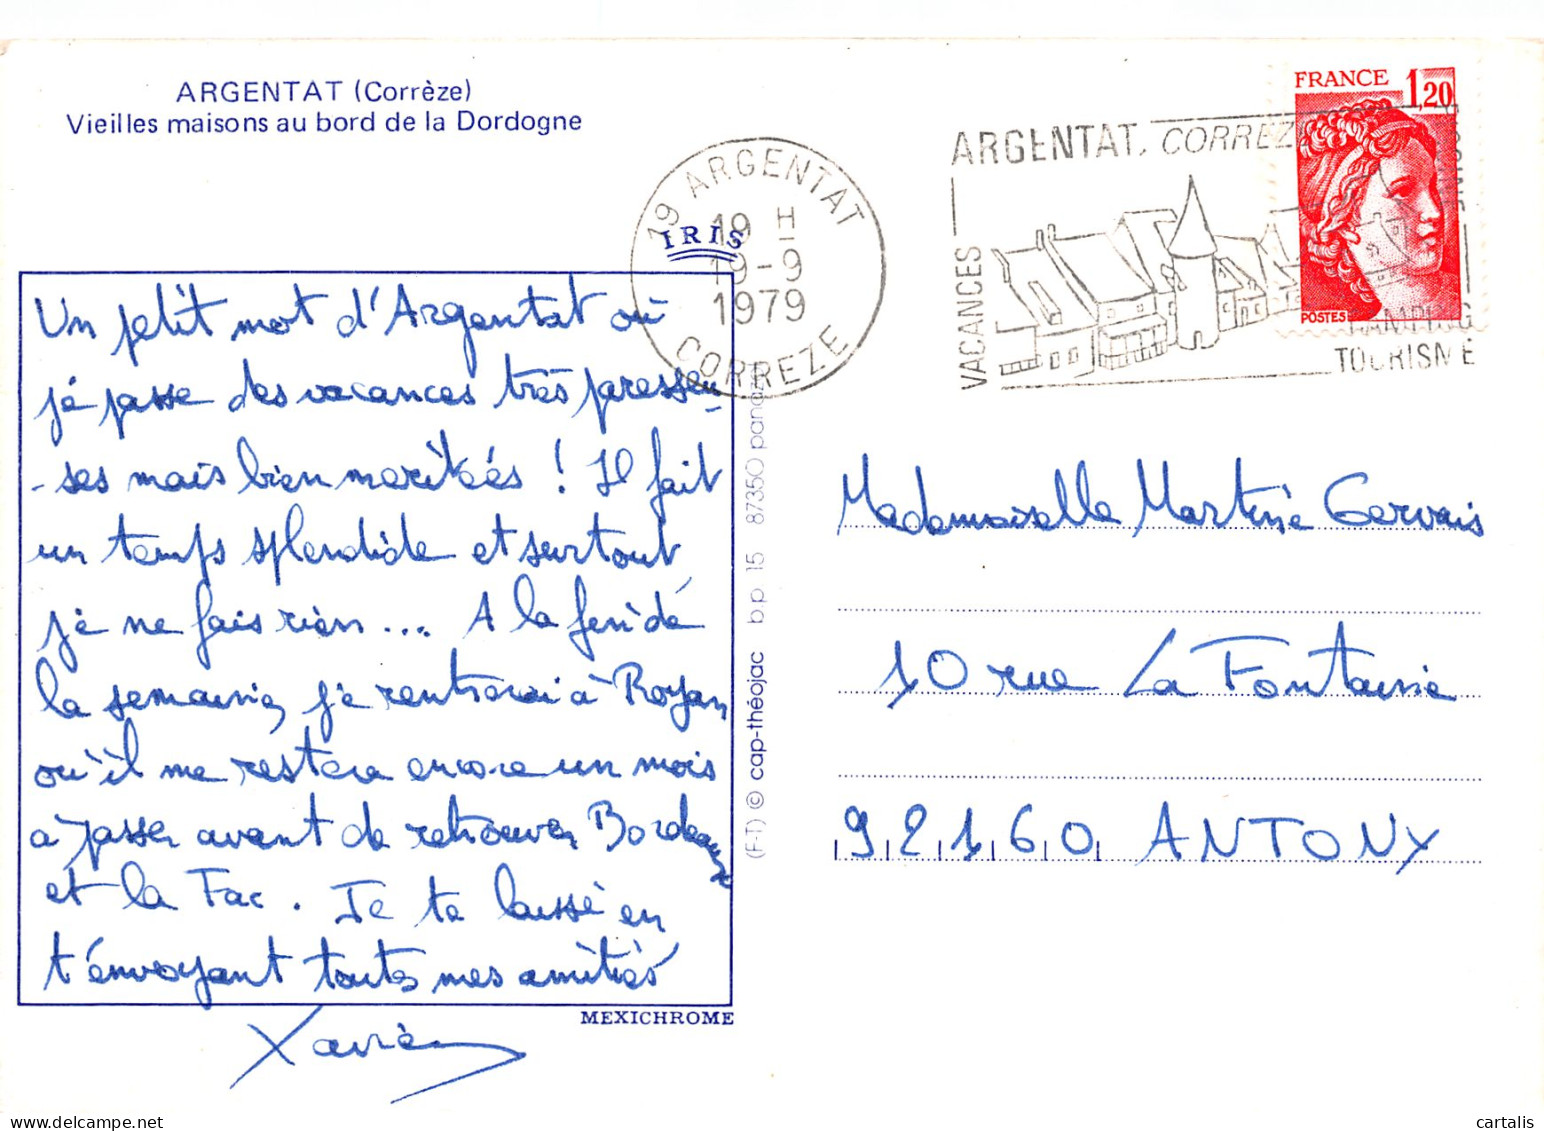 ARGENTAT (Corrèze)
Vieilles maisons au bord de la Dordogne
19 ARGENTAT
19 H
19-9
1979
CORREZE
ARGENTAT, CORREZ
VACANCES
TOURISME
FRANCE 1,20
POSTES
IRIS
Un petit mot d'Argentat où
je passe des vacances très paresseu-
-ses mais bien meritées ! Il fait
un temps splendide et surtout
je ne fais rien ... A la fin de
la semaine, je rentrerai à Royan
où il me restera encore un mois
a passer avant de retrouver Bordeaux
et la Fac. Je te laisse en
t'envoyant toutes mes amitiés
Xavier
MEXICHROME
(F-T) © cap-théojac b.p. 15 87350 panazol
Mademoiselle Martine Gervais
10 rue La Fontaine
92160 ANTONY
cartalis